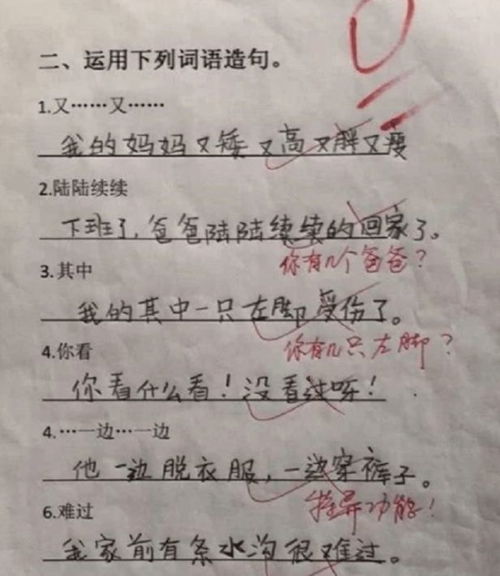 0
二、运用下列词语造句。
1.又……又……
我的妈妈又矮又高又胖又瘦
2.陆陆续续
下班了,爸爸陆陆续续的回家了。
你有几个爸爸?
3.其中
我的其中一只左脚受伤了。
你有几只左脚?
4.你看
你看什么看!没看过呀!
4.…一边…一边
他一边脱衣服,一边穿裤子。
特异功能!
6.难过
我家前有条水沟很难过。